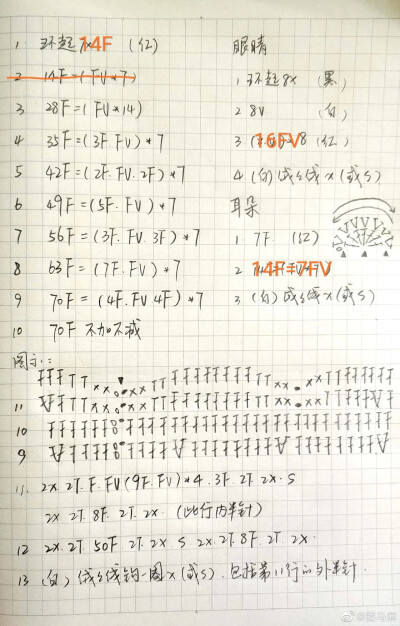 1 环起 14F (红)
2 14F=(FV*7)
3 28F=(FV*14)
4 35F=(3F.FV)*7
5 42F=(2F.FV.2F)*7
6 49F=(5F.FV)*7
7 56F=(3F.FV.3F)*7
8 63F=(7F.FV)*7
9 70F=(4F.FV.4F)*7
10 70F 不加不减
眼睛
1 环起8X (黑)
2 8V (白)
3 16FV (红)
4 (白)线X(或S)
耳朵
1 7F (红)
2 14F=7FV
3 (白)线X(或S)
图示:
FFFTTXX XXTTFFFFFFFFTTXX XXTTFFFF
11
10
9
11. 2X.2T.F.FV(9F.FV)*4.3F.2T.2X.S
2X 2T.8F.2T.2X (此行内半针)
12 2X.2T 50F 2T.2X S 2X.2T.8F 2T.2X
13 (白)线钩一圈X(或S).包括第11行的外半针.